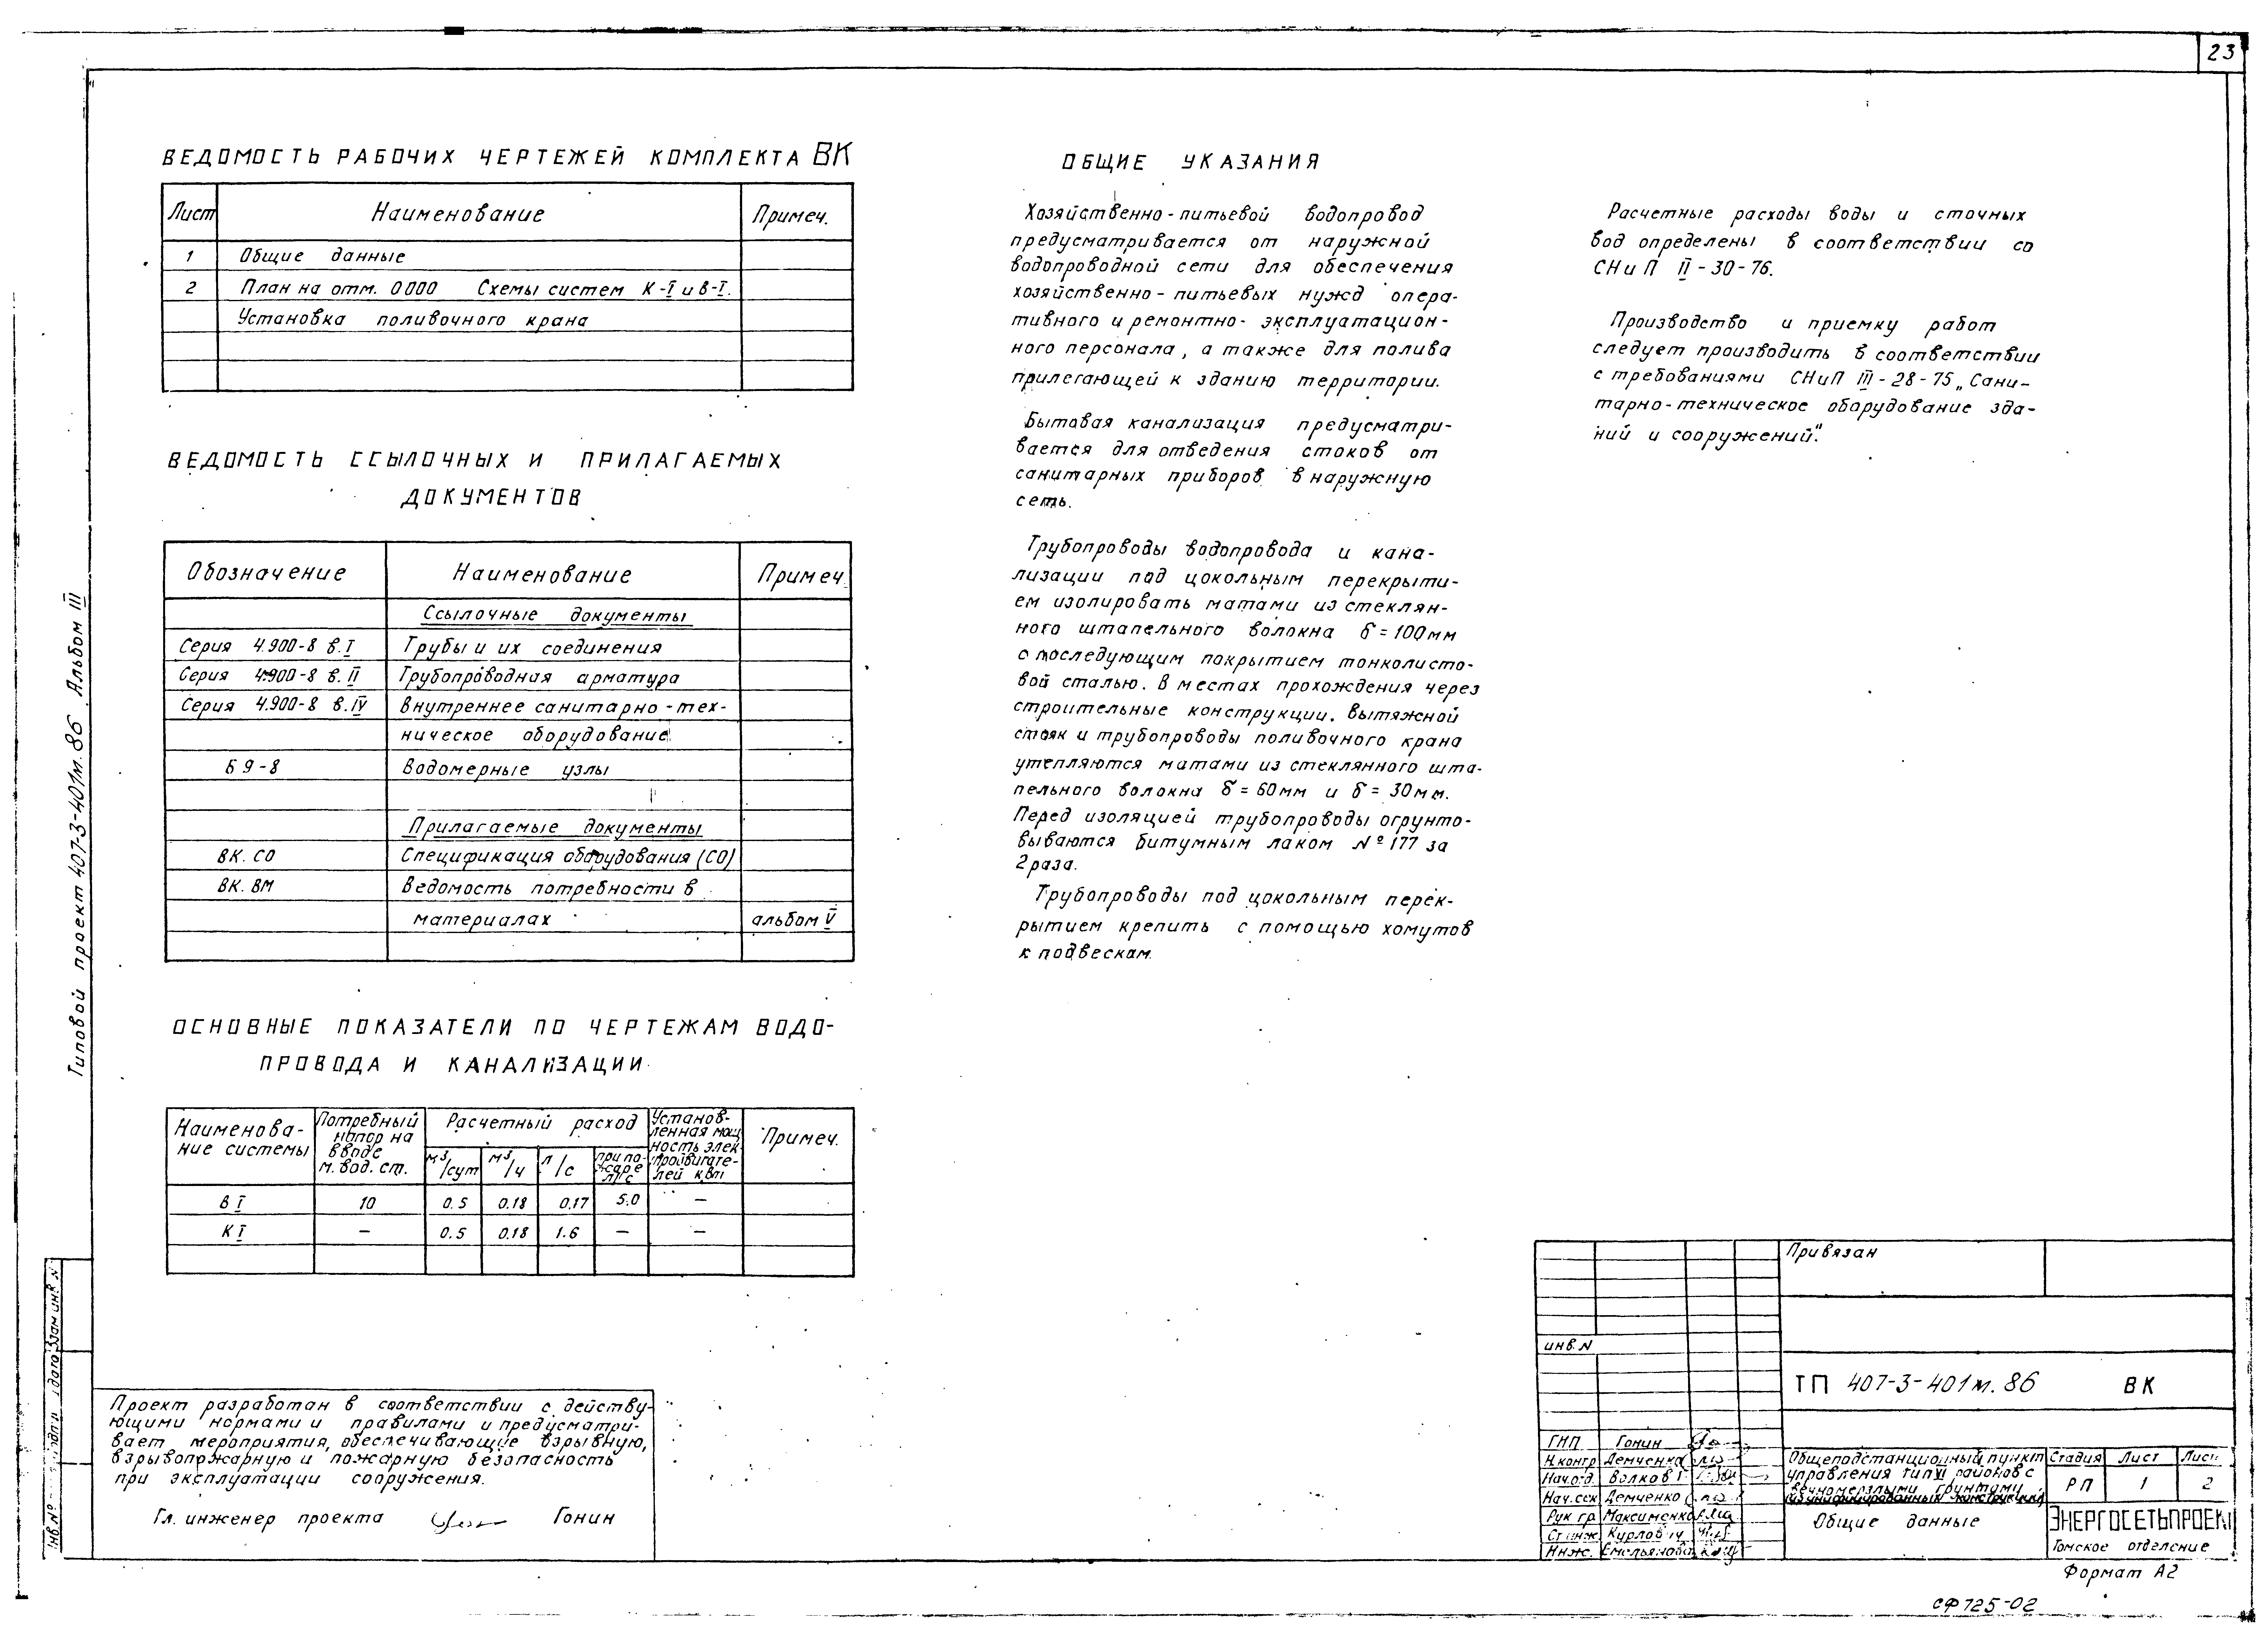 23
Типовой проект 407-3-401м.86 Альбом III
ВЕДОМОСТЬ РАБОЧИХ ЧЕРТЕЖЕЙ КОМПЛЕКТА ВК
Лист Наименование Примеч.
1 Общие данные
2 План на отм. 0000 Схемы систем К-I и В-I.
Установка поливочного крана
ВЕДОМОСТЬ ССЫЛОЧНЫХ И ПРИЛАГАЕМЫХ
ДОКУМЕНТОВ
Обозначение Наименование Примеч
Ссылочные документы
Серия 4.900-8 в.I Трубы и их соединения
Серия 4.900-8 в. II Трубопроводная арматура
Серия 4.900-8 в.IV Внутреннее санитарно-тех-
ническое оборудование
Б9-8 Водомерные узлы
Прилагаемые документы
ВК. СО Спецификация оборудования (СО)
ВК. ВМ Ведомость потребности в
материалах альбом V
ОСНОВНЫЕ ПОКАЗАТЕЛИ ПО ЧЕРТЕЖАМ ВОДО-
ПРОВОДА И КАНАЛИЗАЦИИ
Наименова-
ние системы
Потребный
напор на
вводе
м. вод. ст.
Расчетный расход
м³/сут м³/ч л/с
при по-
жаре
л/с
Установ-
ленная мощ
ность элек-
тродвигате-
лей квт
Примеч.
В I 10 0.5 0.18 0.17 5.0 —
К I — 0.5 0.18 1.6 — —
Проект разработан в соответствии с действу-
ющими нормами и правилами и предусматри-
вает мероприятия, обеспечивающие взрывную,
взрывопожарную и пожарную безопасность
при эксплуатации сооружения.
Гл. инженер проекта Гонин
ОБЩИЕ УКАЗАНИЯ
Хозяйственно-питьевой водопровод
предусматривается от наружной
водопроводной сети для обеспечения
хозяйственно-питьевых нужд опера-
тивного и ремонтно-эксплуатацион-
ного персонала, а также для полива
прилегающей к зданию территории.
Бытовая канализация предусматри-
вается для отведения стоков от
санитарных приборов в наружную
сеть.
Трубопроводы водопровода и кана-
лизации под цокольным перекрыти-
ем изолировать матами из стеклян-
ного штапельного волокна δ = 100мм
с последующим покрытием тонколисто-
вой сталью. В местах прохождения через
строительные конструкции. Вытяжной
стояк и трубопроводы поливочного крана
утепляются матами из стеклянного шта-
пельного волокна δ = 60мм и δ = 30мм.
Перед изоляцией трубопроводы огрунто-
вываются битумным лаком №177 за
2 раза.
Трубопроводы под цокольным перек-
рытием крепить с помощью хомутов
к подвескам.
Расчетные расходы воды и сточных
вод определены в соответствии со
СНиП II-30-76.
Производство и приемку работ
следует производить в соответствии
с требованиями СНиП III-28-75 „Сани-
тарно-техническое оборудование зда-
ний и сооружений".
Привязан
инв.N
ТП 407-3-401м.86 ВК
ГИП Гонин
Н.контр Демченко
Нач.отд. Волков
Нач.сек Демченко
Рук гр. Максименко
Ст инж. Курлович
Инж. Емельянова
Общеподстанционный пункт
управления тип VI районов с
вечномерзлыми грунтами
Общие данные
Стадия Лист
РП 1 2
ЭНЕРГОСЕТЬПРОЕКТ
Томское отделение
Формат А2
СФ 725-02